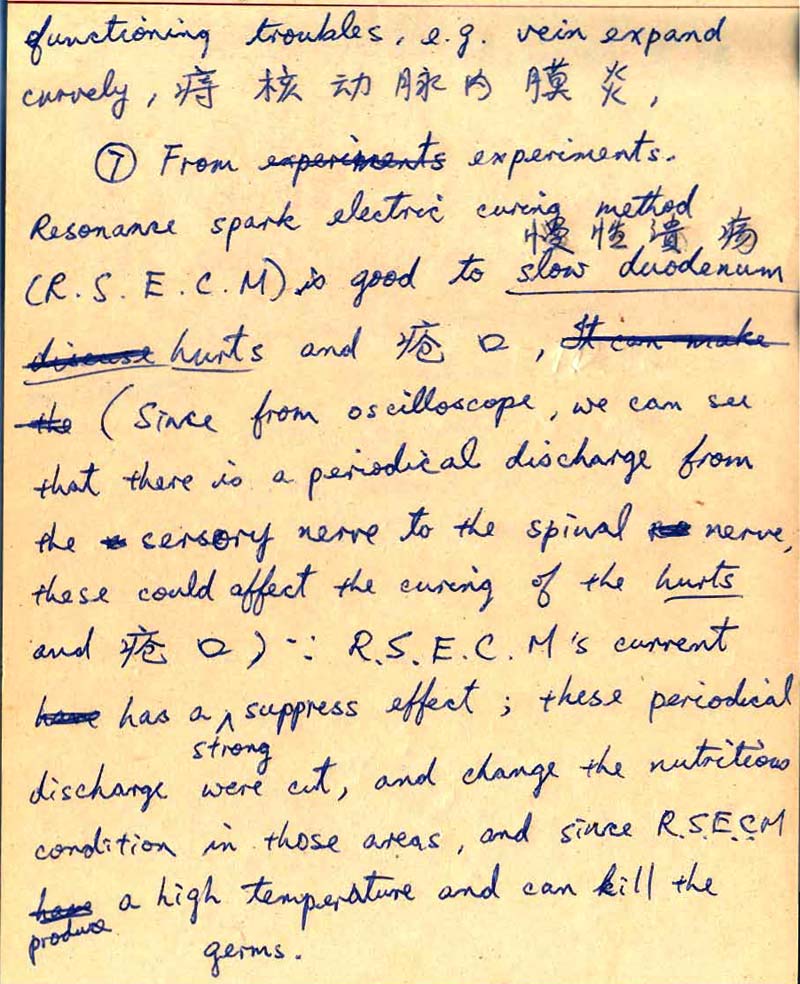 functioning troubles, e.g. vein expand
curvely, 痔 核 动 脉 内 膜 炎,
⑦ From experiments experiments.
Resonance spark electric curing method
慢 性 遺 疡
(R.S.E.C.M) is good to slow duodenum
disease hurts and 疮 口, It can make
the (Since from oscilloscope, we can see
that there is a periodical discharge from
the sersory nerve to the spinal nerve,
these could affect the curing of the hurts
and 疮 口) ∵ R.S.E.C.M's current
have has a ^ suppress effect; these periodical
strong
discharge were cut, and change the nutritious
condition in those areas, and since R.S.E.C.M
have a high temperature and can kill the
produce
germs.